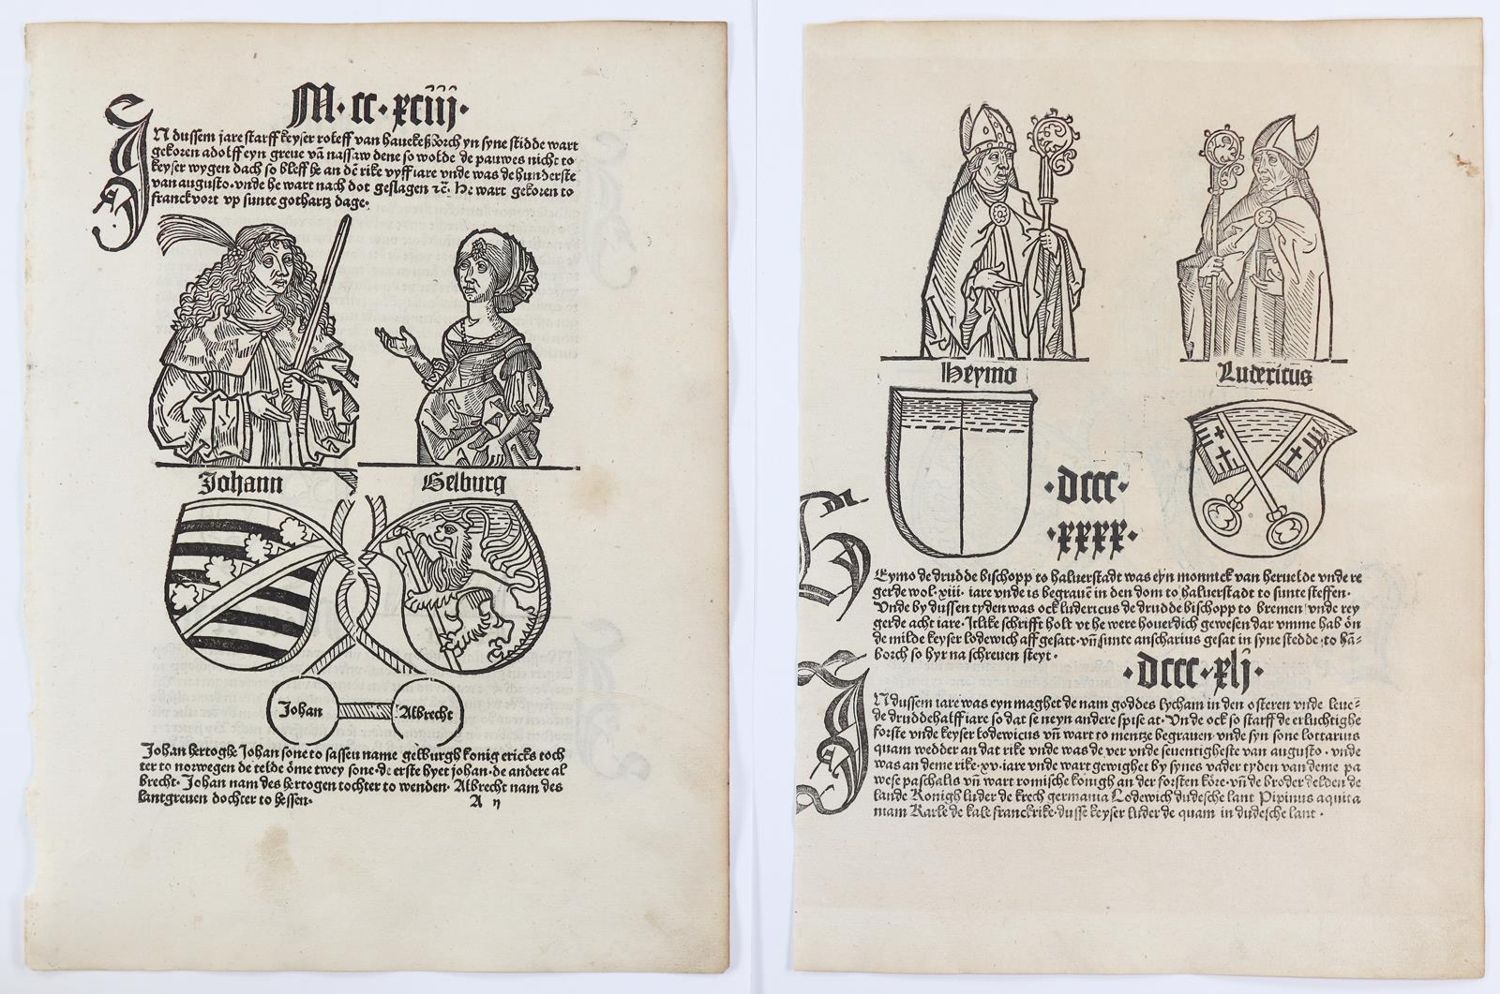 M·cc·xciij·
IN dussem jare starff keyser roleff van hauekeßborch yn syne stidde wart
gekoren adolff eyn greue vā nassaw dene so wolde de pauwes nicht to
keyser wygen dach so bleff he an dē rike vyff iare vnde was de hunderste
van augusto· vnde he wart nach dot geslagen ꝛc̄· He wart gekoren to
franckvort vp sunte gothartz dage·
Johann
Gelburg
Johan
Albrecht
Johan hertoghe Johan sone to sassen name gelburgh konig ericks toch
ter to norwegen de telde ōme twey sone· de erste hyet johan· de andere al
brecht· Johan nam des hertogen tochter to wenden· Albrecht nam des
lantgreuen dochter to hessen·
A ij
Heymo
Ludericus
·dccc·
·xxxx·
HEymo de drudde bischopp to haluerstadt was eyn monnick van heruelde vnde re
gerde wol·xiii· iare vnde is begrauē in den dom to haluerstadt to sunte steffen·
Vnde by dussen tyden was ock ludericus de drudde bischopp to bremen vnde rey
gerde acht iare· Itlike schrifft holt vt he were houerdich gewesen dar vmme hab ōn
de milde keyser lodewich aff gesatt· vn̄ sunte anscharius gesat in syne stedde· to hā=
borch so hyr na schreuen steyt·
·dccc·xlj·
IN dussem iare was eyn maghet de nam goddes lycham in den osteren vnde leue=
de druddehalff iare so dat se neyn andere spise at· Vnde ock so starff de erluchtighe
forste vnde keyser lodewicus vn̄ wart to mentze begrauen· vnde syn sone lottarius
quam wedder an dat rike vnde was de ver vnde seuentigheste van augusto· vnde
was an deme rike·xv·iare vnde wart gewighet by synes vader tyden van deme pa
wese paschalis vn̄ wart romische konigh an der forsten kōre· vn̄ de broder delden de
lande Konigh luder de krech germania Lodewich dudesche lant Pipinus aquita
niam Karle de kale franckrike· dusse keyser luder de quam in dudesche lant·